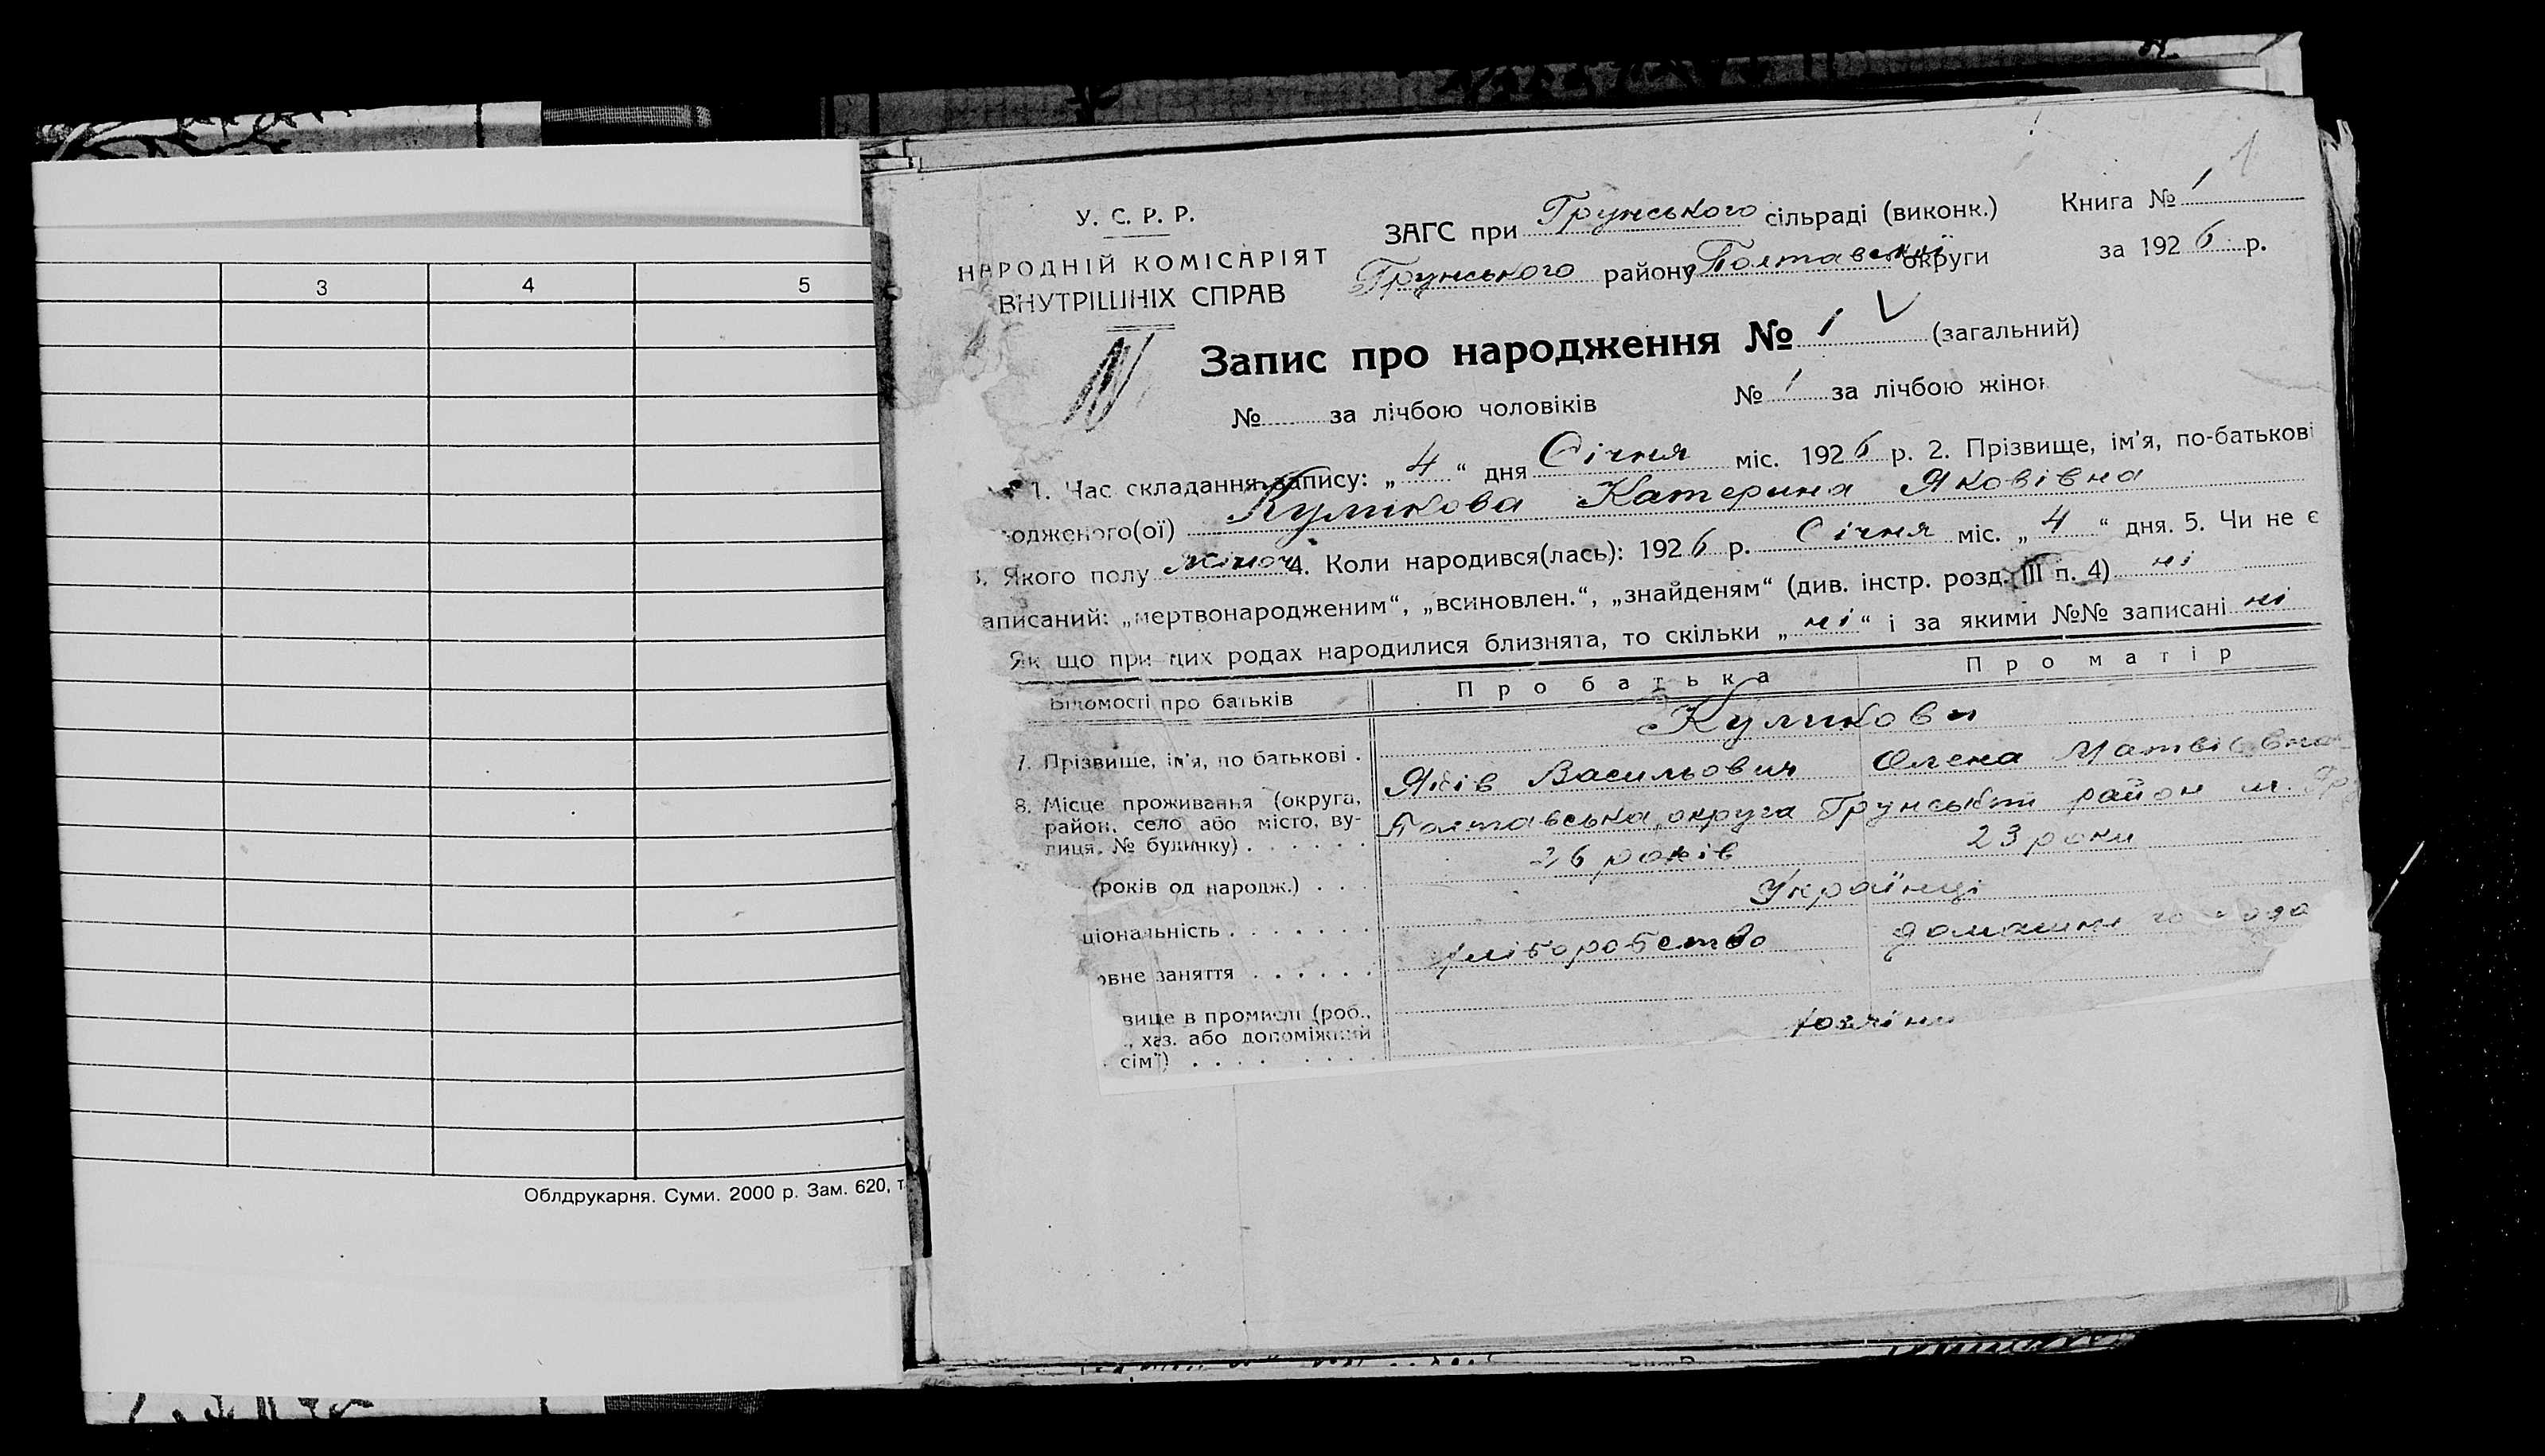 3 4 5
Облдрукарня. Суми. 2000 р. Зам. 620, т
1
У. С. Р. Р.
НАРОДНІЙ КОМІСАРІЯТ
ВНУТРІШНІХ СПРАВ
ЗАГС при Грунського сільраді (виконк.)
Грунського району Полтавської округи
Книга № 1
за 1926 р.
Запис про народження № 1 (загальний)
№ за лічбою чоловіків № 1 за лічбою жінок
1. Час складання запису: „4“ дня Січня міс. 1926 р. 2. Прізвище, ім'я, по-батькові
одженого(ої) Куликова Катерина Яковівна
3. Якого полу жіноч 4. Коли народився(лась): 1926 р. Січня міс. „4“ дня. 5. Чи не є
аписаний: „мертвонародженим“, „всиновлен.“, „знайденям“ (див. інстр. розд. III п. 4) ні
Як що при цих родах народилися близнята, то скільки „ні“ і за якими №№ записані ні
Відомості про батьків Про батька Про матір
Куликови
7. Прізвище, ім'я, по батькові . Яків Васильович Олена Матвіївна
8. Місце проживання (округа,
район, село або місто, ву-
лиця, № будинку) . . . . . . Полтавська округа Грунський район м. Гр
(років од народж.) . . . 26 років 23 роки
ціональність . . . . . . . Українці
овне заняття . . . . . . хліборобство домашнє
вище в промислі (роб.,
., хаз. або допоміжний
сім'ї) . . . . . . . .